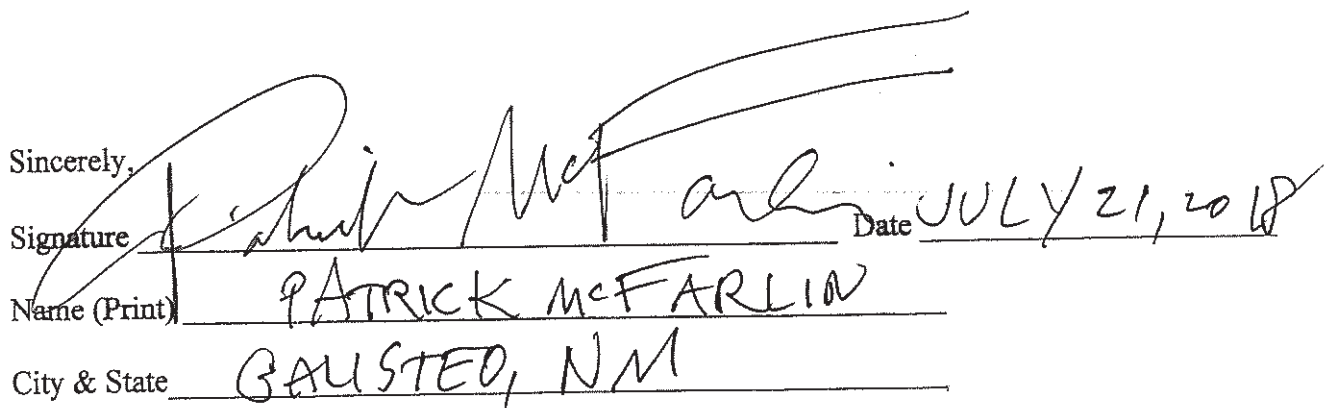 Sincerely,
Signature Patrick McFarlin Date JULY 21, 2018
Name (Print) PATRICK McFARLIN
City & State GALISTEO, NM